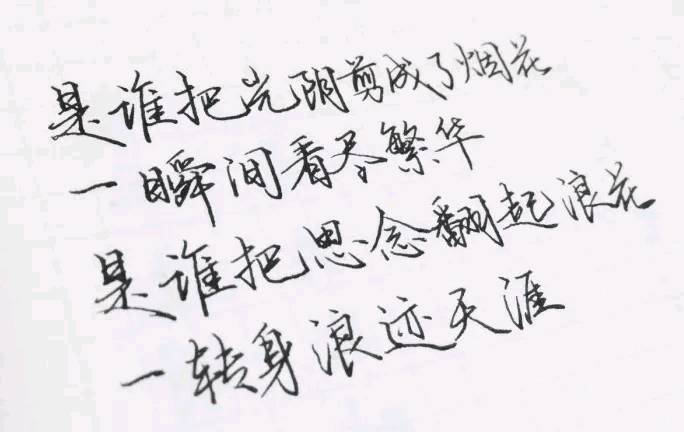 是谁把光阴剪成了烟花
一瞬间看尽繁华
是谁把思念翻起浪花
一转身浪迹天涯